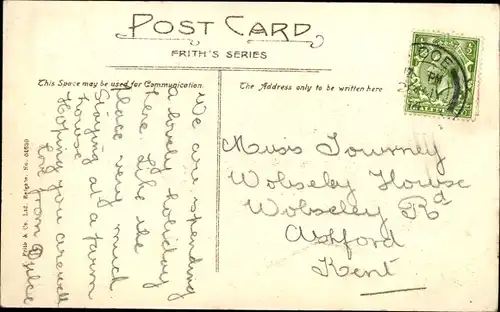 POST CARD
FRITH'S SERIES
This Space may be used for Communication.
The Address only to be written here
We are spending
a lovely holiday
here. Like the
place very much
Staying at a farm
house
Hoping you are well
Love from
Miss Tourney
Wolseley House
Wolseley Rd
Ashford
Kent
Frith & Co. Ltd. Reigate. No.
PM